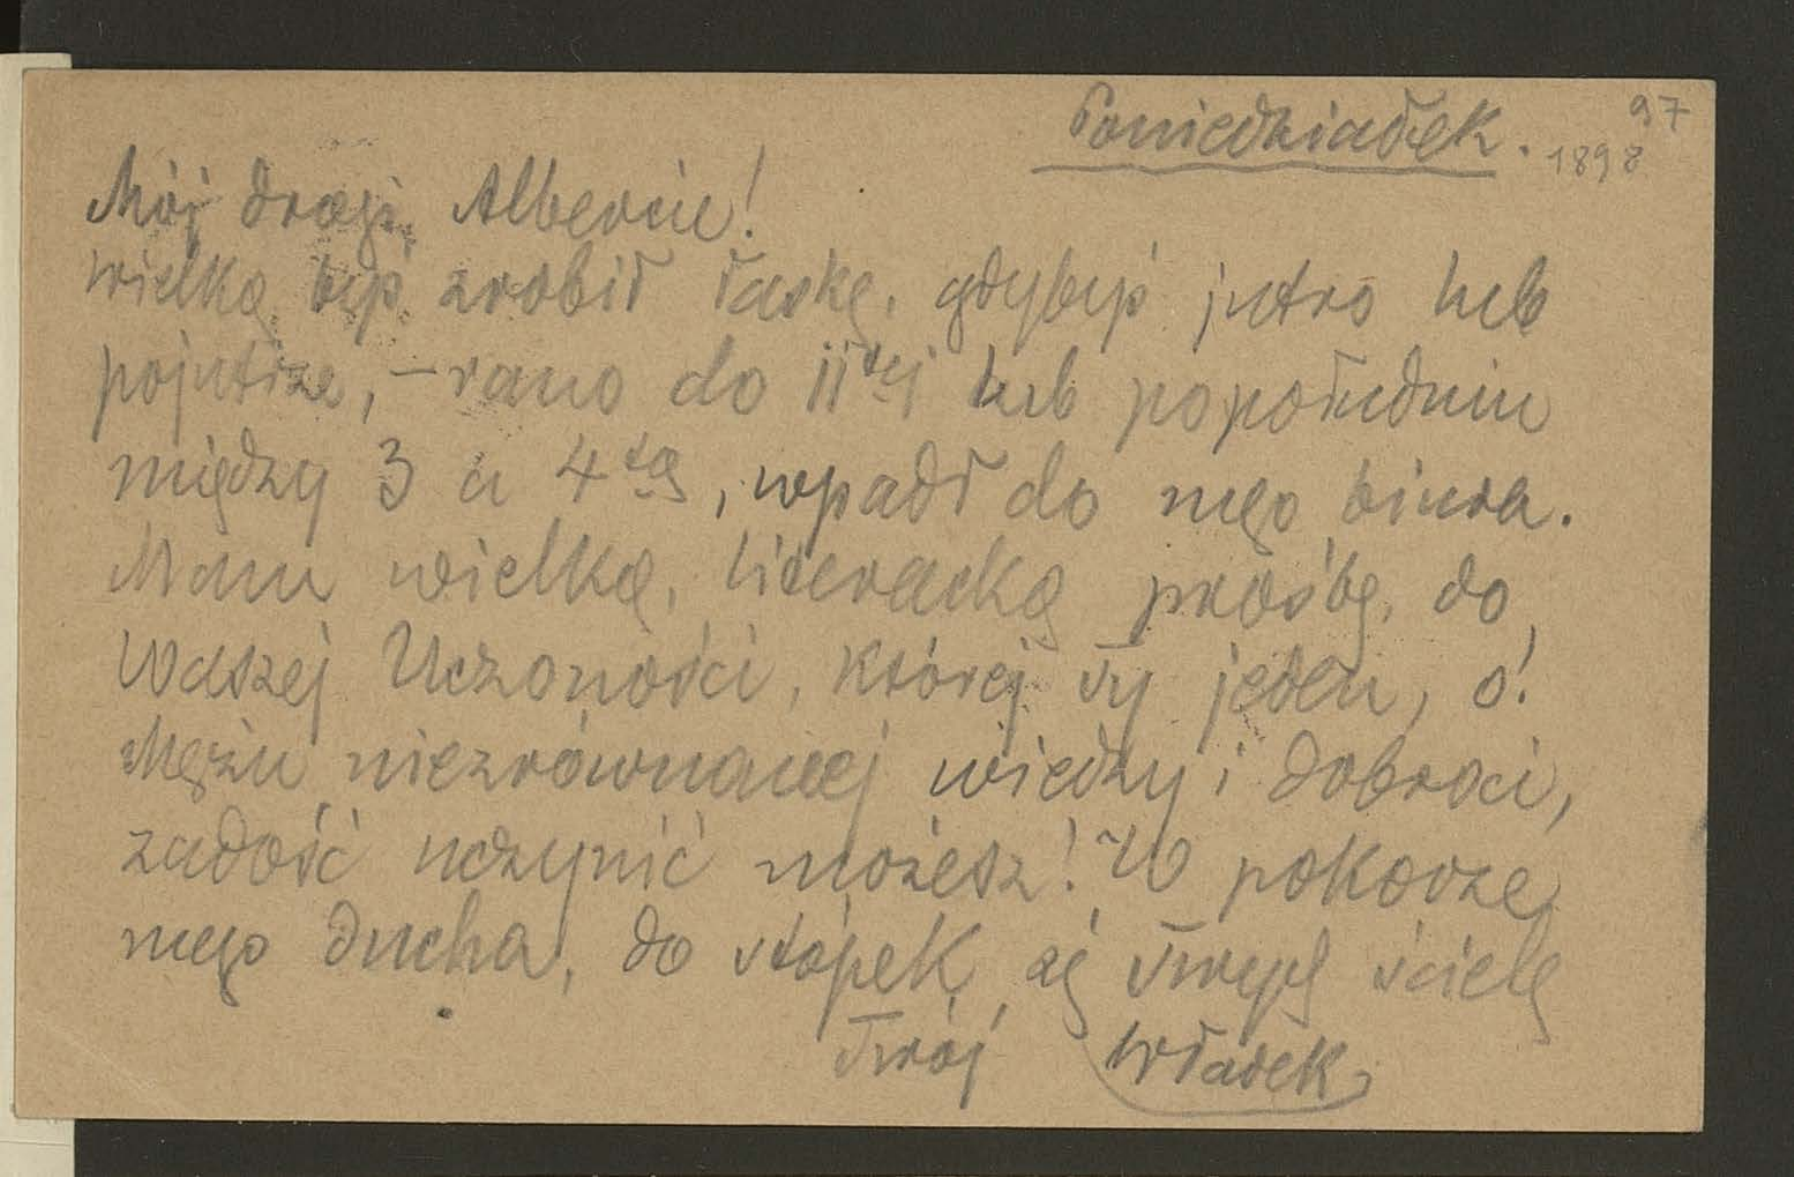 97
Poniedziałek. 1898
Mój drogi Albercie!
wielką byś zrobił łaskę, gdybyś jutro lub
pojutrze, – rano do 11tej lub popołudniu
między 3 a 4tą, wpadł do mego biura.
Mam wielką, literacką prośbę, do
Waszej Uczoności, której Ty jeden, o!
Mężu niezrównanej wiedzy i dobroci,
zadość uczynić możesz! W pokorze
mego ducha, do stópek się Twych ścielę
Twój Władek